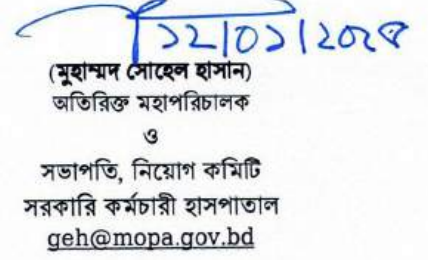 ১২/০১/২০২৪
(মুহাম্মদ সোহেল হাসান)
অতিরিক্ত মহাপরিচালক
ও
সভাপতি, নিয়োগ কমিটি
সরকারি কর্মচারী হাসপাতাল
geh@mopa.gov.bd